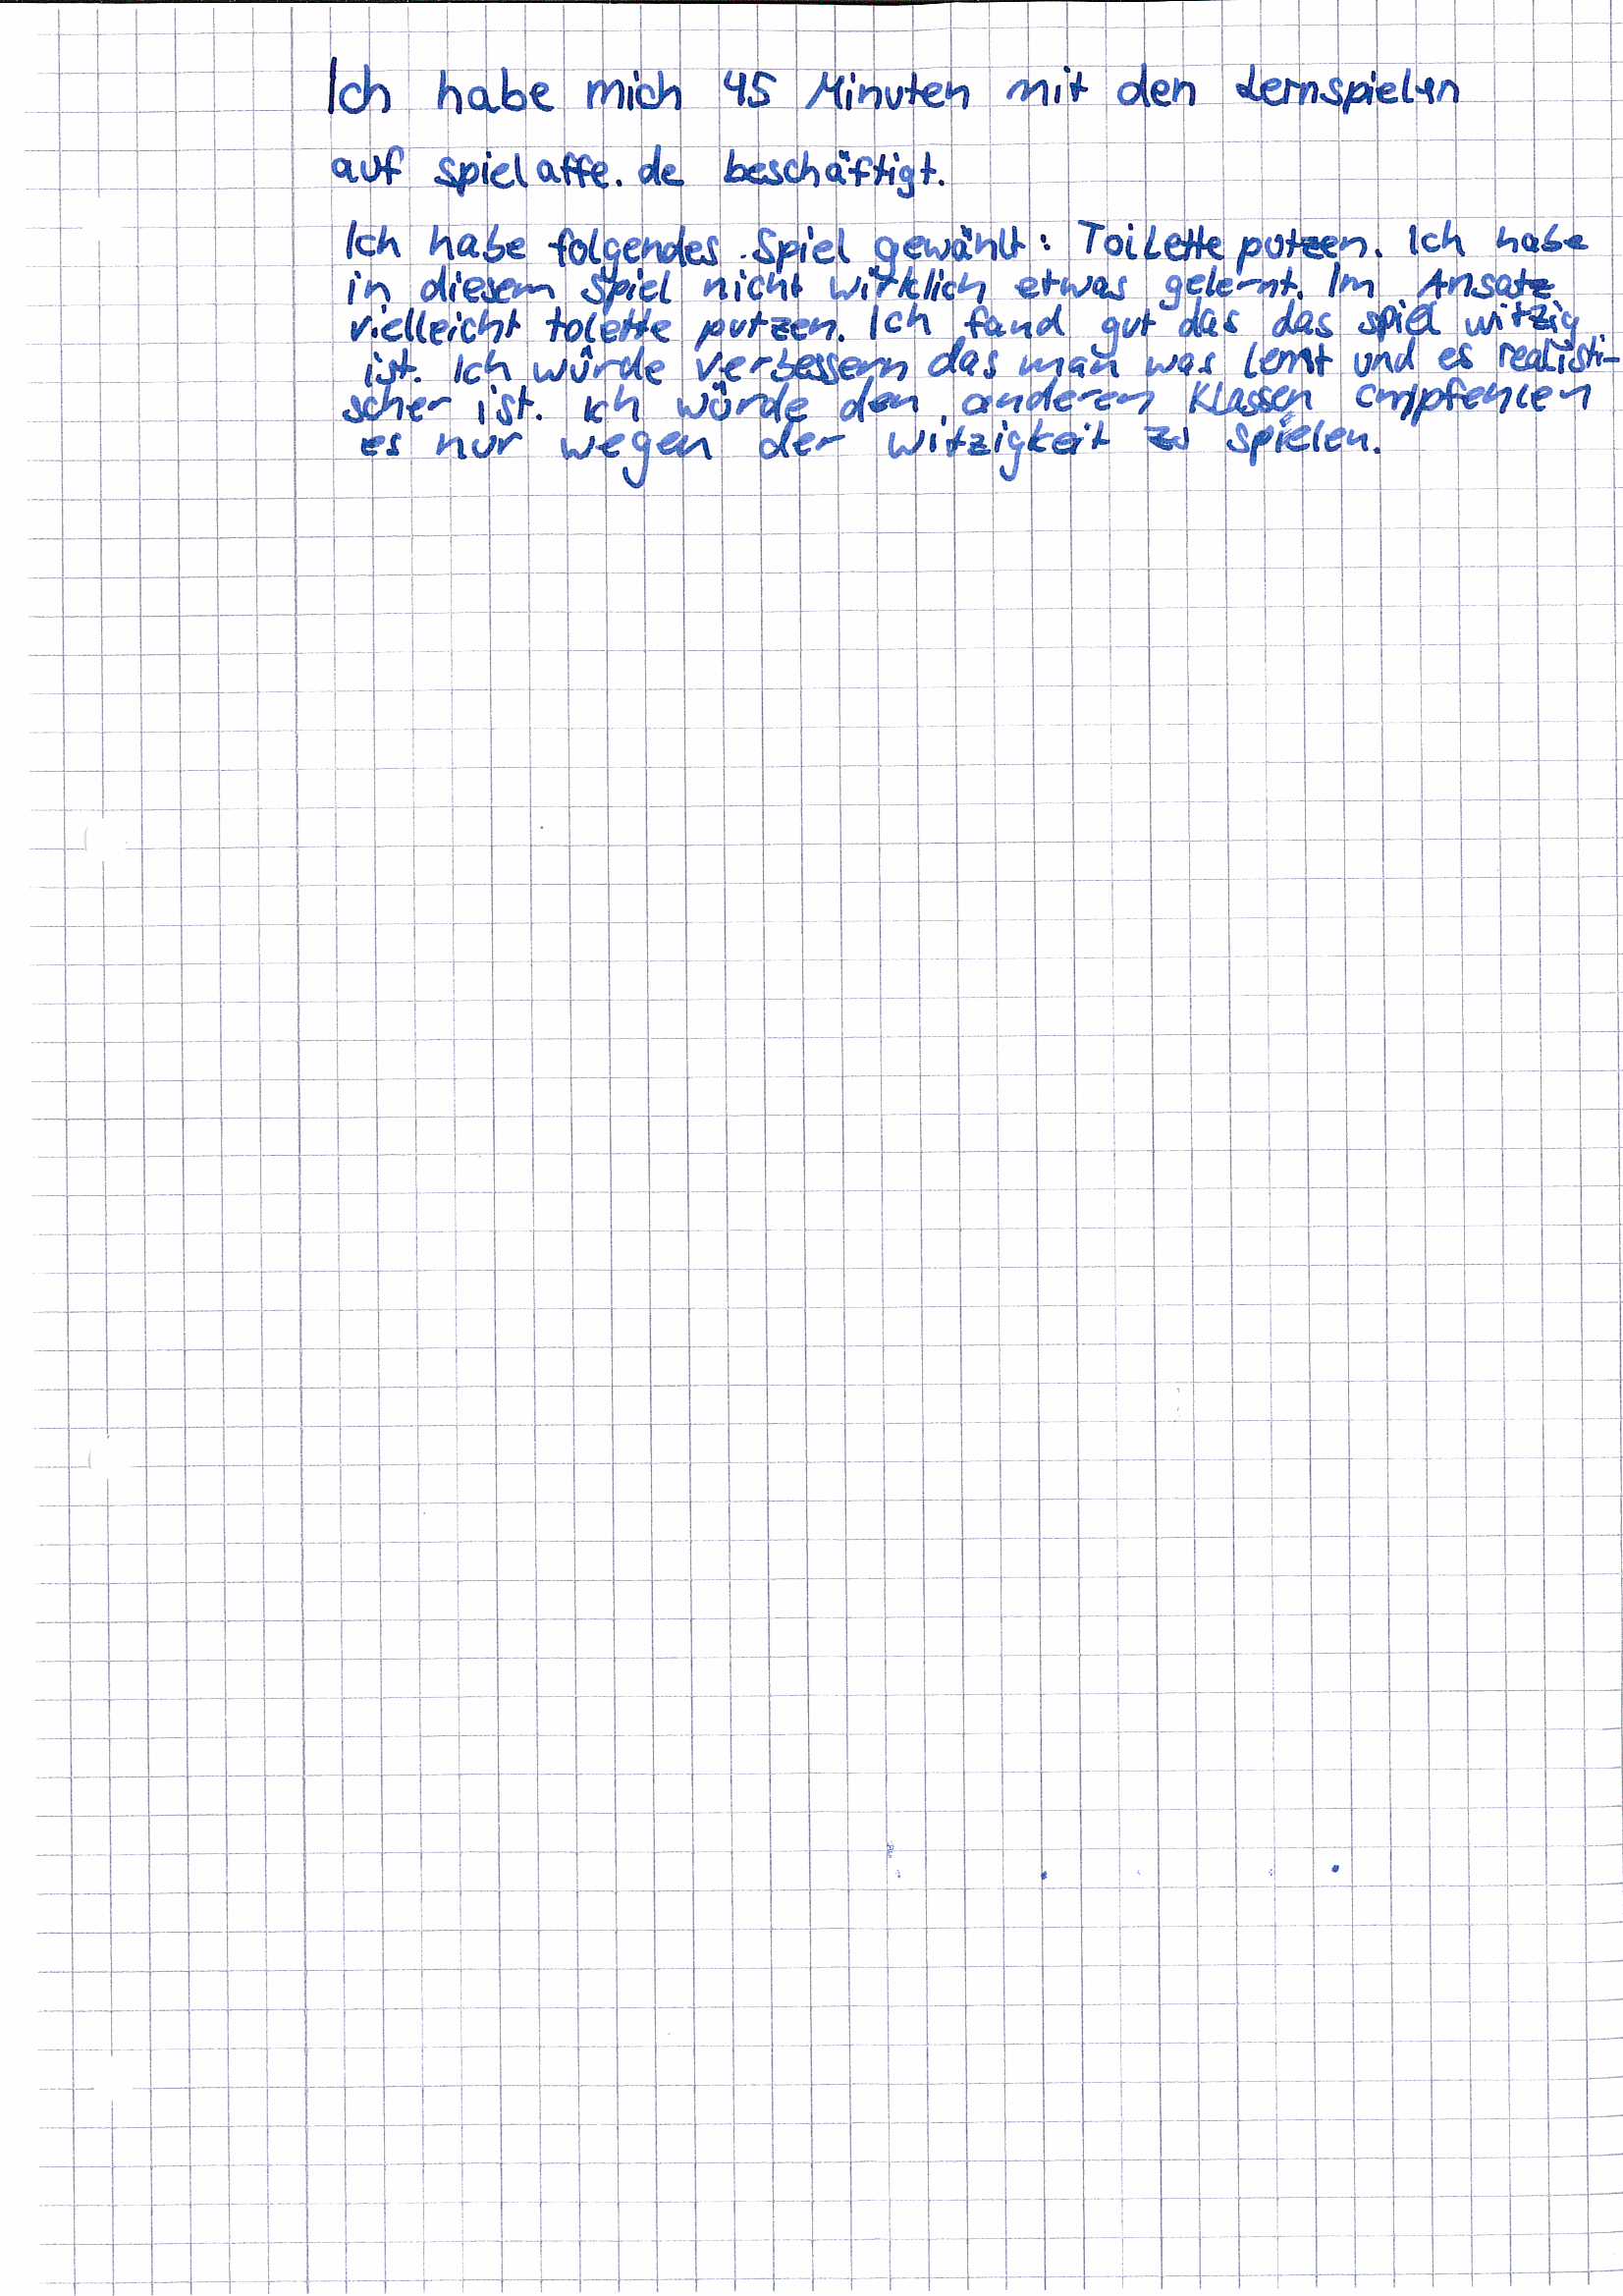 Ich habe mich 45 Minuten mit den Lernspielen
auf spielaffe.de beschäftigt.
Ich habe folgendes Spiel gewählt: Toilette putzen. Ich habe
in diesem Spiel nicht wirklich etwas gelernt. Im Ansatz
vielleicht tolette putzen. Ich fand gut das das spiel witzig
ist. Ich würde verbessern das man was lernt und es realisti-
scher ist. Ich würde den anderen Klassen empfehlen
es nur wegen der witzigkeit zu spielen.